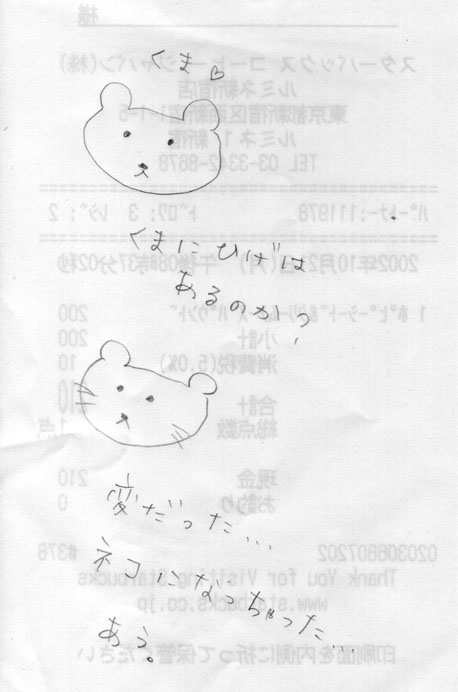 くま♡
くまにひげは
あるのか?
変だった…
ネコになっちゃった…
あう。
様
スターバックス コーヒー ジャパン(株)
ルミネ新宿店
東京都新宿区西新宿1-1-5
ルミネ1 新宿
TEL 03-3342-8678
ﾊﾟｰﾄﾅｰ:111978 ﾄﾞﾛﾜ: 3 ﾚｼﾞ: 2
2002年10月 (月) 午後08時37分02秒
200
小計 200
消費税(5.0%) 10
合計 210
総点数 1点
現金 210
お釣り 0
020306807202 #378
Thank You for Visiting Starbucks
www.starbucks.co.jp
印刷面を内側に折って保管ください